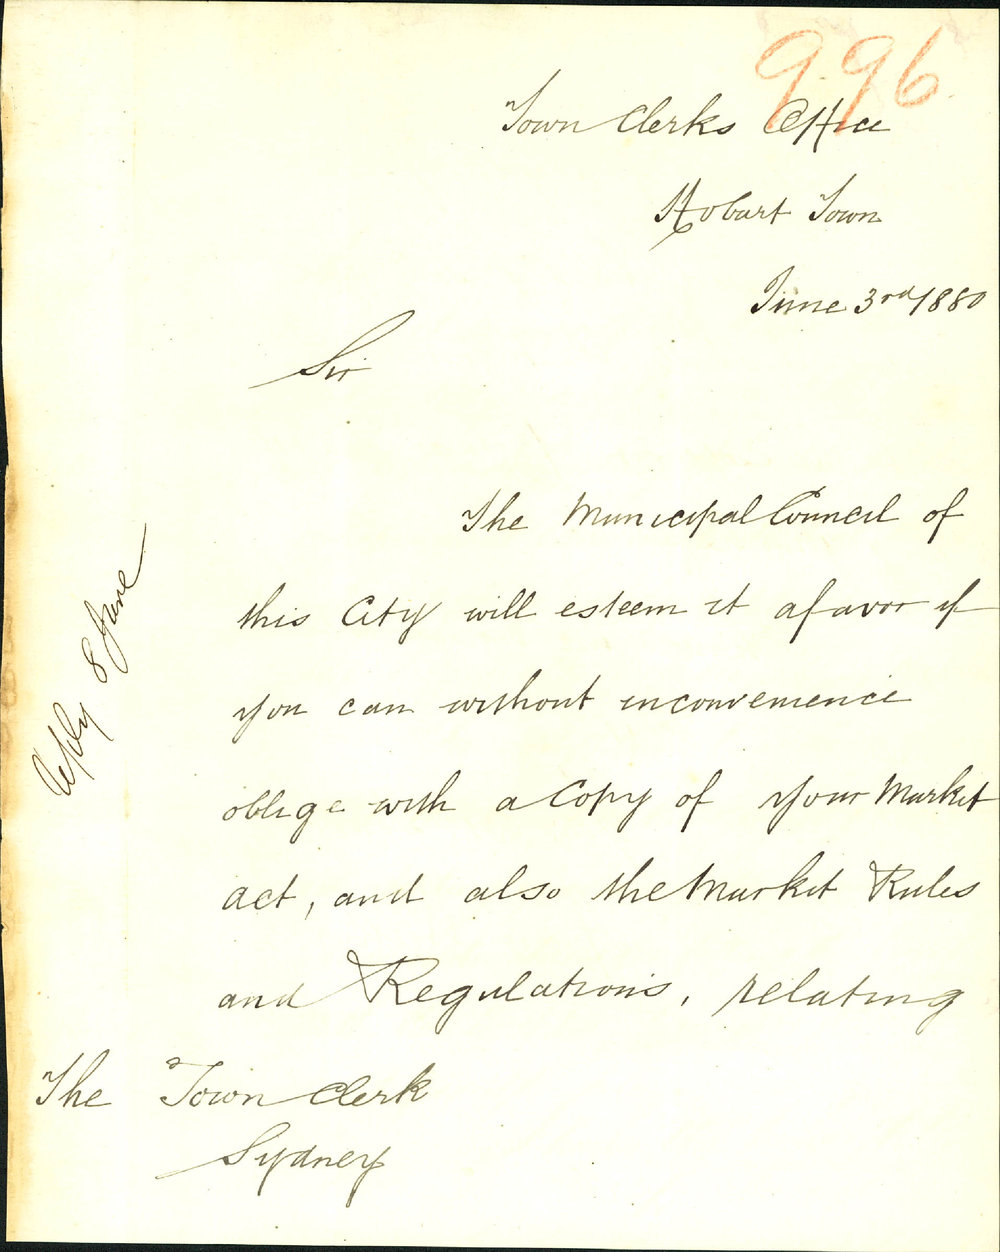 996
Town Clerks Office
Hobart Town
June 3rd/1880
Sir
The Municipal Council of
this City will esteem it a favor if
you can without inconvenience
oblige with a Copy of your Market
act, and also the Market Rules
and Regulations, relating
The Town Clerk
Sydney
Reply 8 June